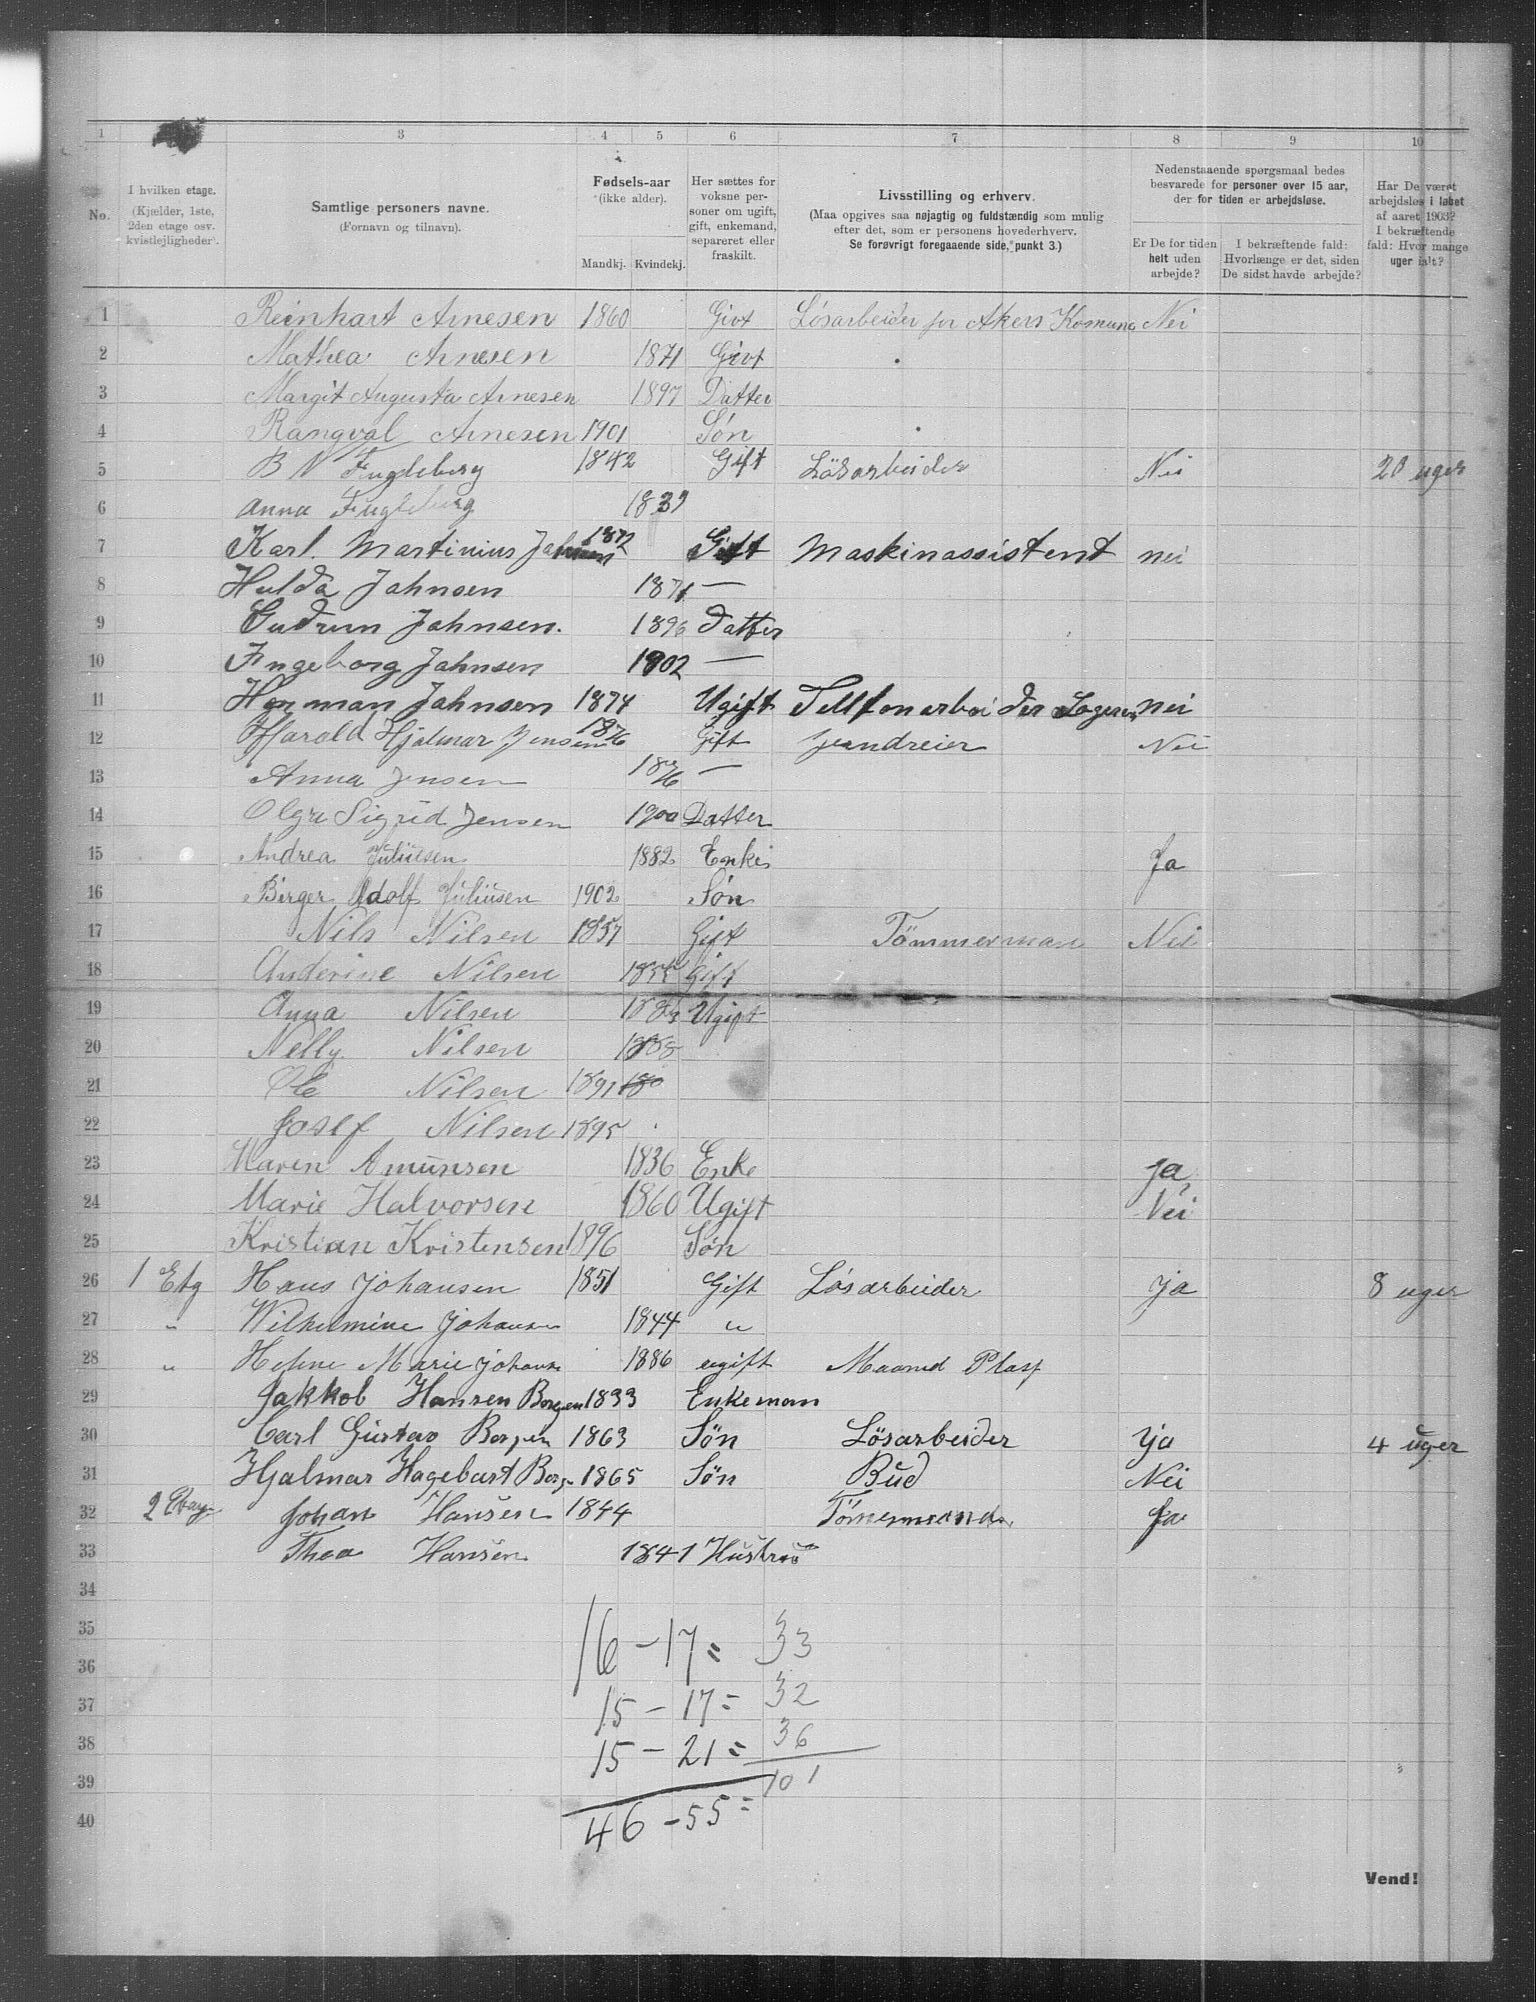 1 3 4 5 6 7 8 9 10
No.
I hvilken etage. (Kjælder, 1ste, 2den etage osv. kvistlejligheder).
Samtlige personers navne. (Fornavn og tilnavn).
Fødsels-aar (ikke alder). Mandkj. Kvindekj.
Her sættes for voksne personer om ugift, gift, enkemand, separeret eller fraskilt.
Livsstilling og erhverv. (Maa opgives saa nøjagtig og fuldstændig som mulig efter det, som er personens hovederhverv. Se forøvrigt foregaaende side, punkt 3.)
Nedenstaaende spørgsmaal bedes besvarede for personer over 15 aar, der for tiden er arbejdsløse.
Er De for tiden helt uden arbejde?
I bekræftende fald: Hvorlænge er det, siden De sidst havde arbejde?
Har De været arbejdsløs i løbet af aaret 1903? I bekræftende fald: Hvor mange uger ialt?
1 Reinhart Arnesen 1860 Givt Løsarbeider for Akers Komune Nei
2 Mathea Arnesen 1871 Givt
3 Margit Augusta Arnesen 1897 Datter
4 Rangval Arnesen 1901 Søn
5 B N Fugleberg 1842 Gift Lösarbeider Nei 20 uger
6 Anna Fugleberg
7 Karl. Martinius 1872 Gift Maskinassistent nei
8 Hulda Jahnsen 1871 —
9 Gudrun Jahnsen. 1896 datter
10 Ingeborg Jahnsen 1902 —
11 Herman Jahnsen 1874 Ugift Nei
12 Harald Hjalmar Jensen 1876 Gift Nei
13 Anna Jensen 1876 —
14 Olga Sigrid Jensen 1900 Datter
15 Andrea Juliusen 1882 Enke Ja
16 Birger Adolf Juliusen 1902 Søn
17 Nils Nilsen 1857 Gift Tömmerman Nei
18 Anderine Nilsen 1855 Gift
19 Anna Nilsen Ugift
20 Nelly Nilsen 1888
21 Ole Nilsen 1891 18
22 Josef Nilsen 1895
23 Maren Amunsen 1836 Enke ja
24 Marie Halvorsen 1860 Ugift Nei
25 Kristian Kristensen 1896 Søn
26 1 Etg Hans Johansen 1851 Gift Løsarbeider ja 8 uger
27 " Wilhelmine Johansen 1844 "
28 " Marie Johansen 1886 ugift
29 Jakkob Hansen Bergen 1833 Enkeman
30 Carl Gustav Bergen 1863 Søn Lösarbeider ja 4 uger
31 Hjalmar Hagebart Berg 1865 Søn Bud Nei
32 2 Etage Johan Hansen 1844 Ja
33 Thea Hansen 1841 Hustru
34
35
36 16 – 17 = 33
37 15 – 17 = 32
38 15 – 21 = 36
39 101
40 46 – 55 =
Vend!